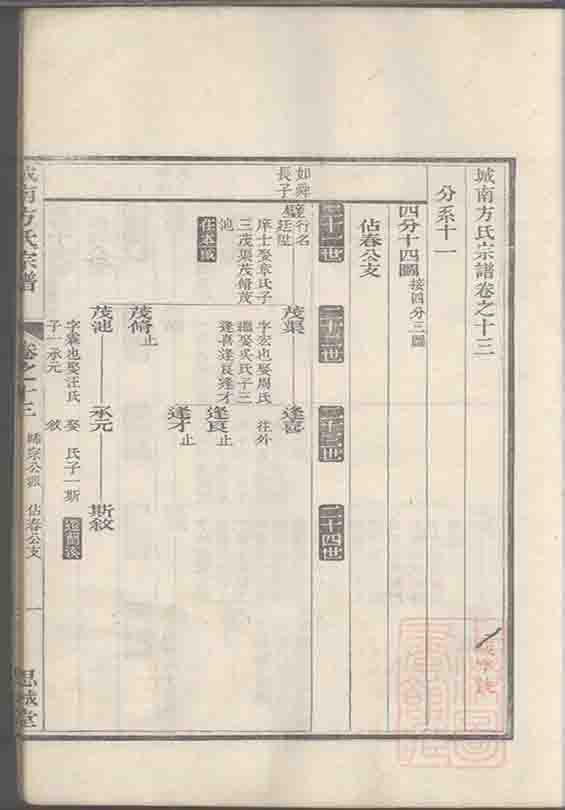 城南方氏宗譜卷之十三
分系十一
四分十四圖接四分三圖
佔春公支
二十一世
二十二世
二十三世
二十四世
如舜
長子
璧行名
廷陛
庠士娶章氏子
三茂渠茂脩茂
池
住本城
茂渠
字宏也娶周氏
繼娶吳氏子三
逢喜逢良逢才
逢喜
往外
逢良止
逢才止
茂脩止
茂池
字霖也娶汪氏
子一承元
承元
娶 氏子一斯
敘
斯敘
城南方氏宗譜
卷之十三
佔春公支
思誠堂